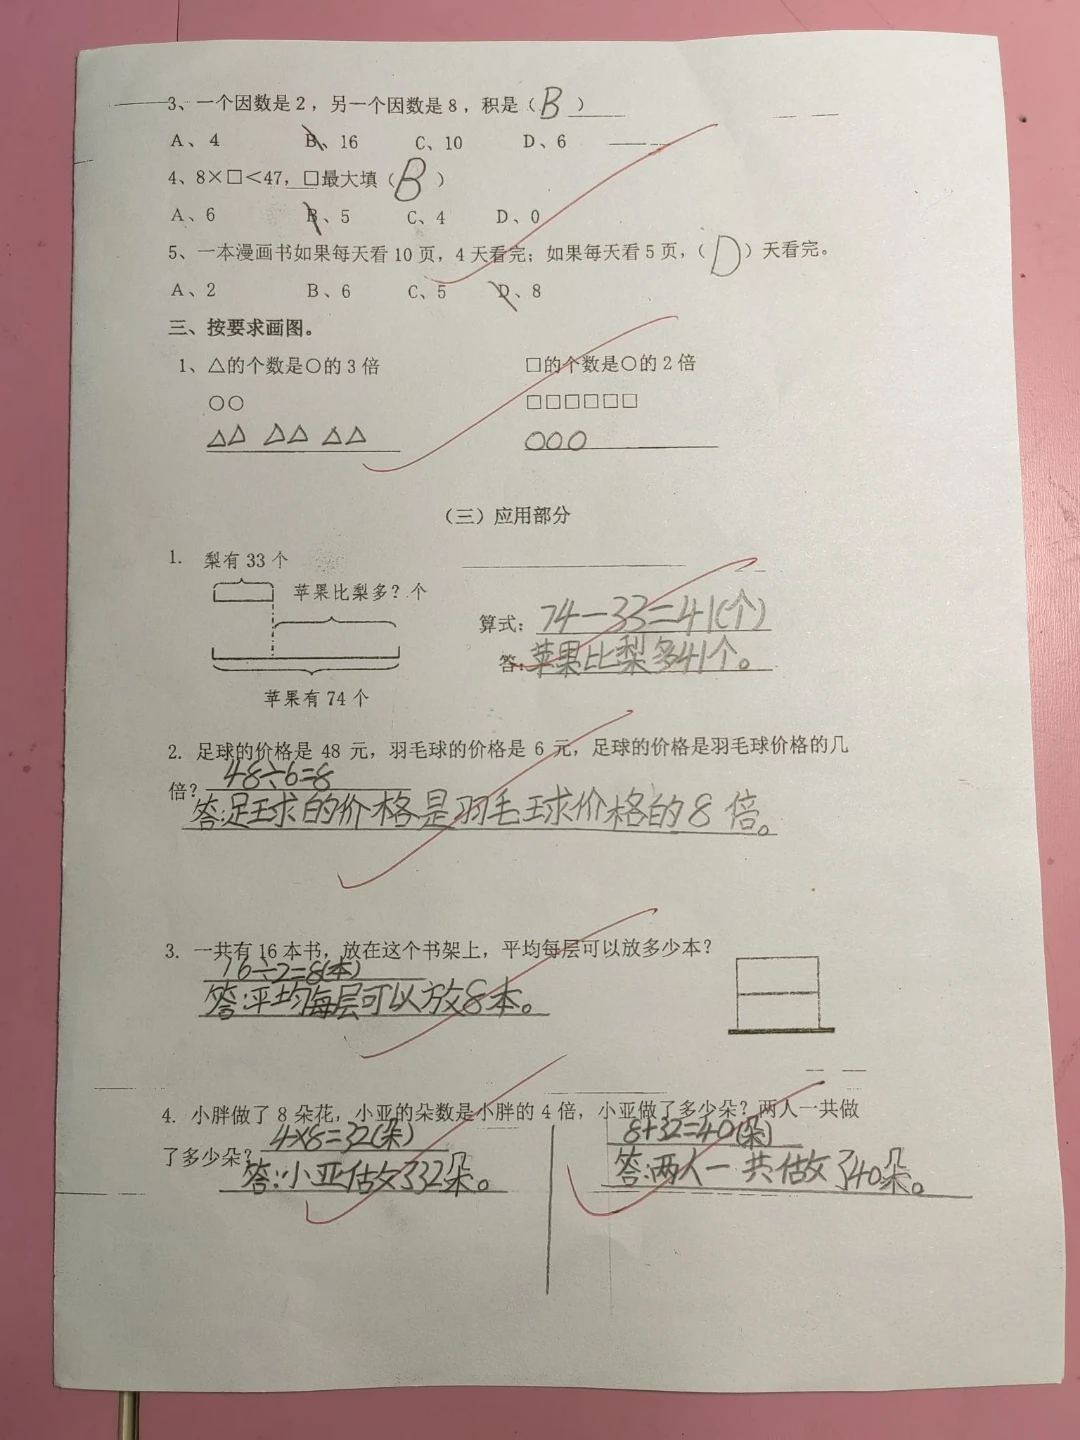 3、一个因数是2，另一个因数是8，积是（ B ）
A、4 B、16 C、10 D、6
4、8×□＜47，□最大填（ B ）
A、6 B、5 C、4 D、0
5、一本漫画书如果每天看10页，4天看完；如果每天看5页，（ D ）天看完。
A、2 B、6 C、5 D、8
三、按要求画图。
1、△的个数是○的3倍 □的个数是○的2倍
○○ □□□□□□
△△ △△ △△ ○○○
（三）应用部分
1. 梨有33个
苹果比梨多？个
算式：74-33=41(个)
答：苹果比梨多41个。
苹果有74个
2. 足球的价格是 48 元，羽毛球的价格是 6 元，足球的价格是羽毛球价格的几
倍？48÷6=8
答:足球的价格是羽毛球价格的8倍。
3. 一共有16本书，放在这个书架上，平均每层可以放多少本？
16÷2=8(本)
答:平均每层可以放8本。
4. 小胖做了 8 朵花，小亚的朵数是小胖的 4 倍，小亚做了多少朵？两人一共做
了多少朵？4×8=32(朵) 8+32=40(朵)
答:小亚做了32朵。 答:两人一共做了40朵。